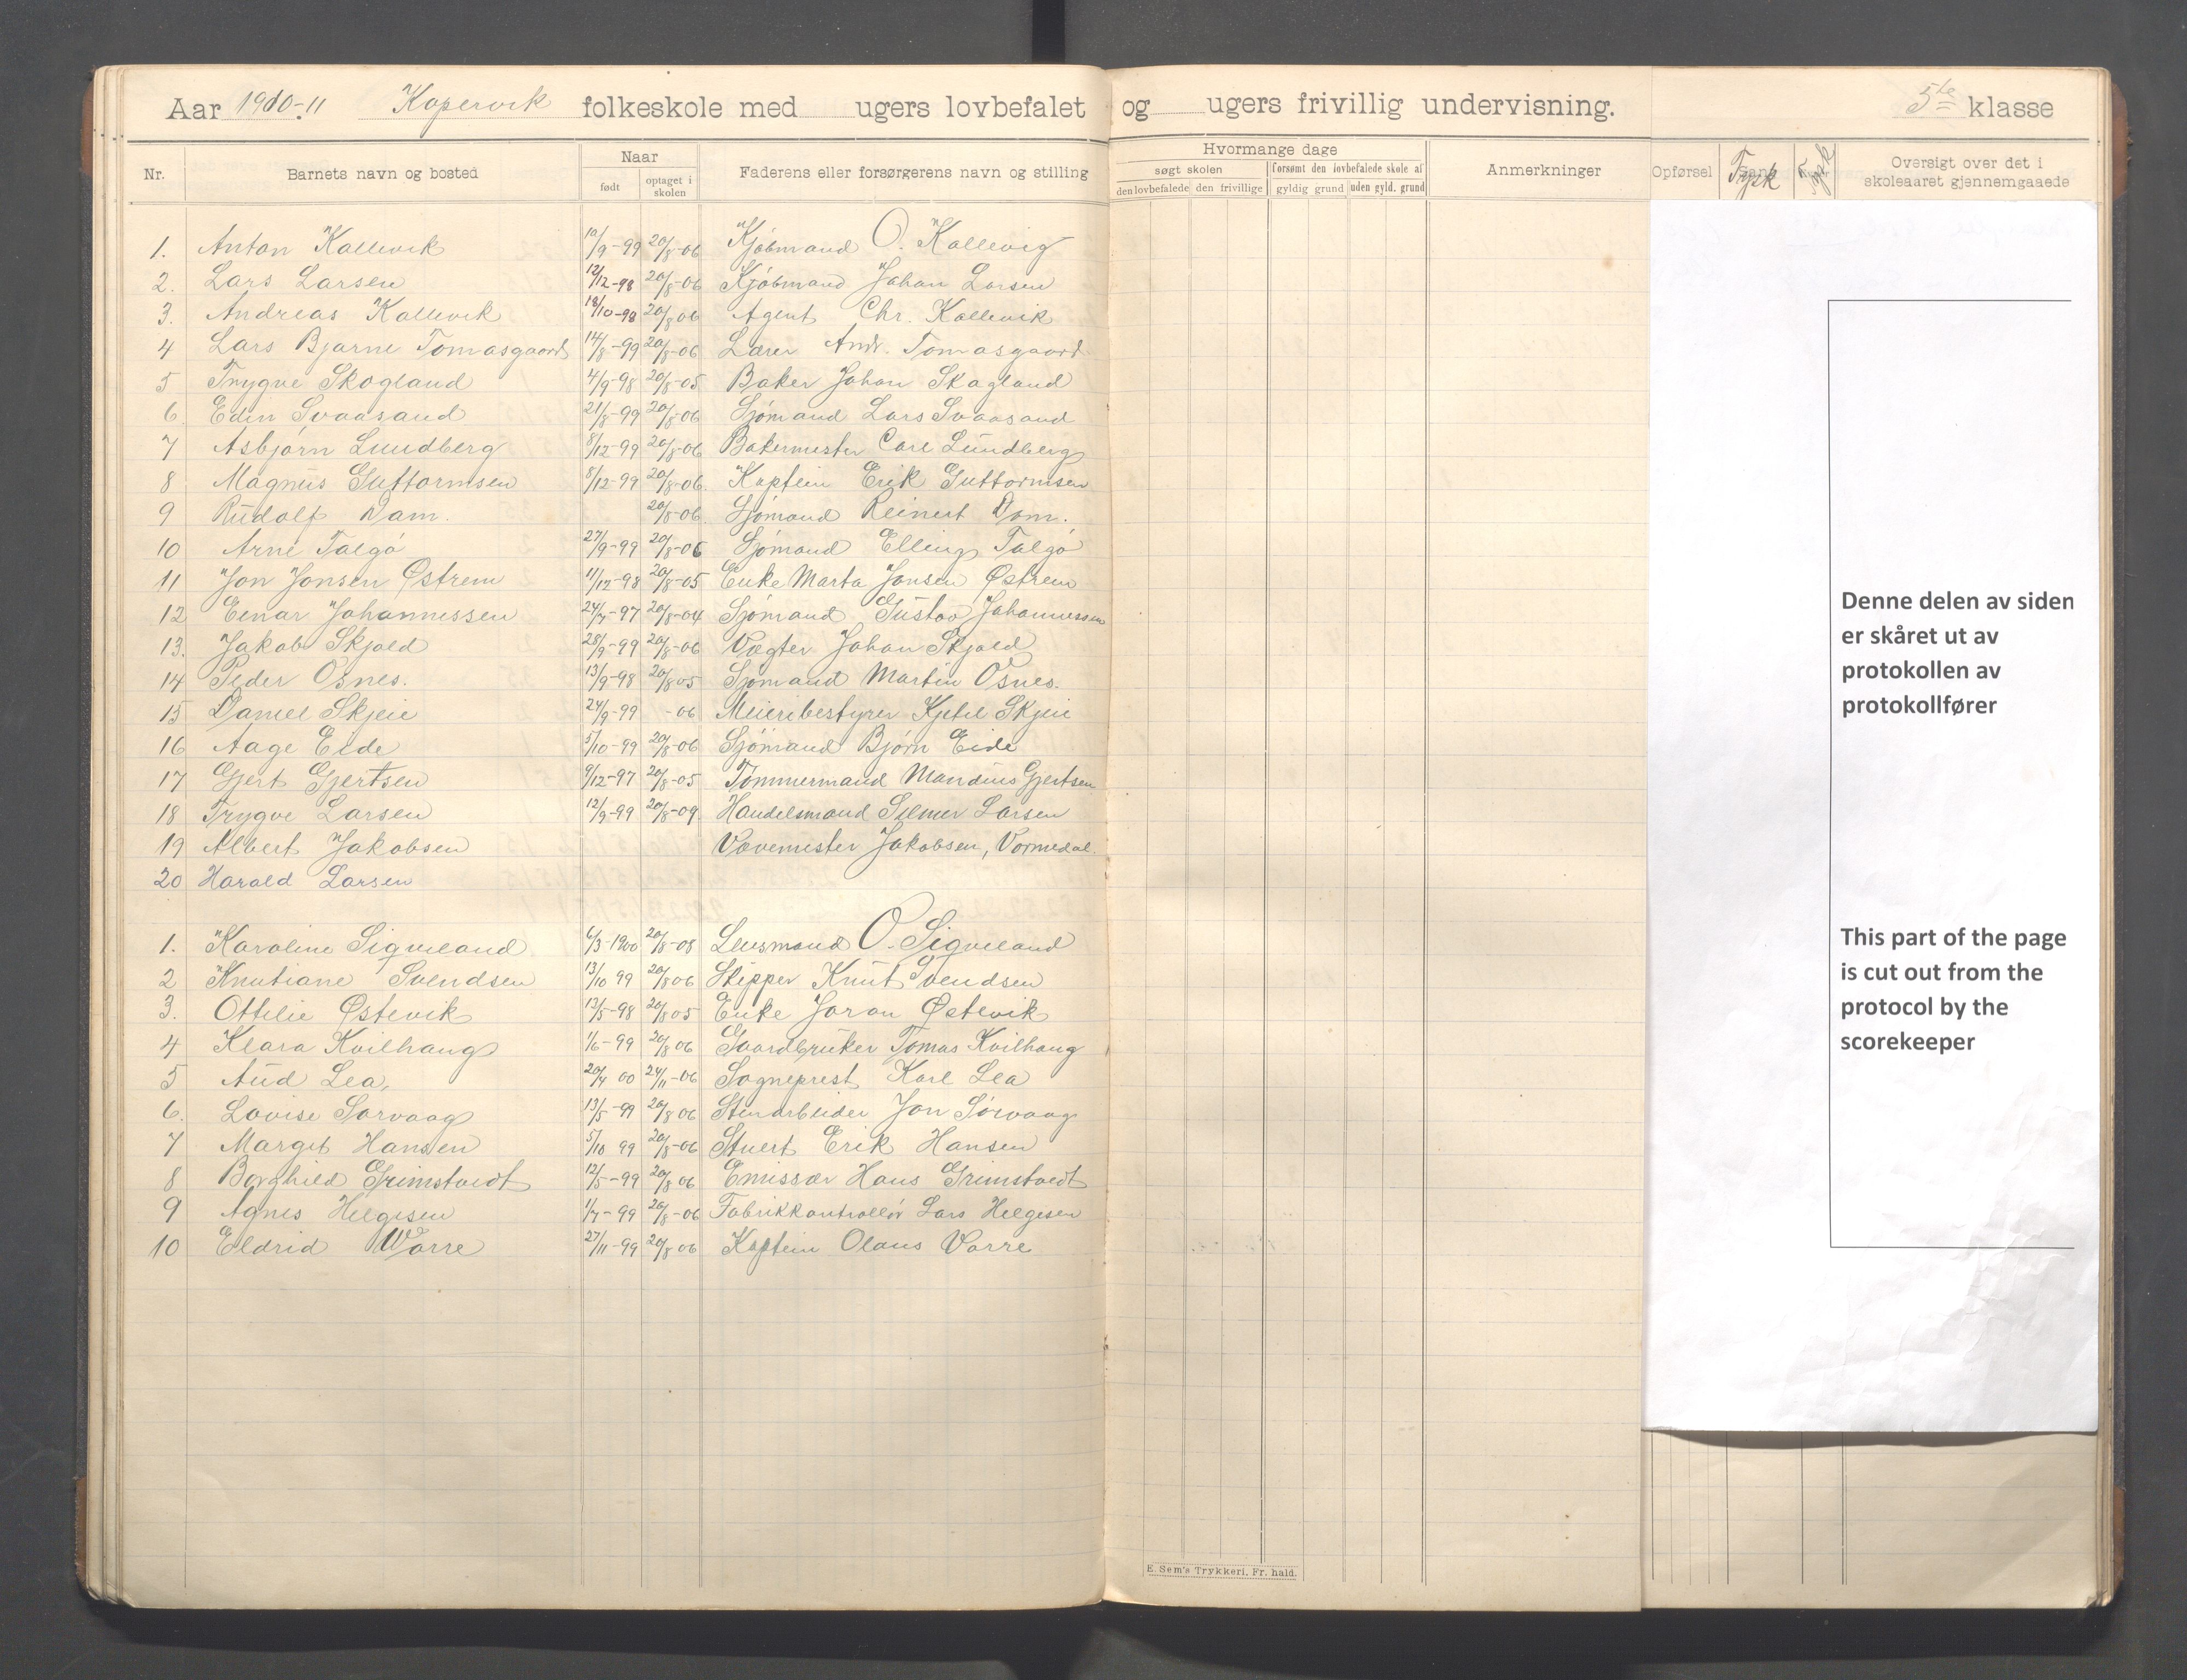 Aar 1910-11 Kopervik folkeskole med ugers lovbefalet og ugers frivillig undervisning. 5te klasse
Nr. Barnets navn og bosted Naar født optaget i skolen Faderens eller forsørgerens navn og stilling Hvormange dage søgt skolen den lovbefalede den frivillige forsømt den lovbefalede skole af gyldig grund uden gyld. grund Anmerkninger Opførsel Tysk Tysk Oversigt over det i skoleaaret gjennemgaaede
1. Anton Kallevik 10/9-99 20/8-06 Kjøbmand O. Kallevig
2. Lars Larsen 12/12-98 20/8-06 Kjøbmand Johan Larsen
3. Andreas Kallevik 18/10-98 20/8 06 Agent Chr. Kallevik
4 Lars Bjarne Tomasgaard 14/8-99 20/8-06 Lærer Andr. Tomasgaard
5 Trygve Skogland 4/9-98 20/8-05 Baker Johan Skogland
6. Edin Svaasand 21/8-99 20/8-06 Sjømand Lars Svaasand
7 Asbjørn Lundberg 8/12-99 20/8-06 Bakermester Carl Lundberg
8 Magnus Guttormsen 8/12-99 20/8-06. Kaptein Erik Guttormsen
9 Rudolf Dam. 20/8-06. Sjømand Reinert Dam.
10 Arne Talgø 27/9-99 20/8-06 Sjømand Elling Talgø
11 Jon Jonsen Østrem 11/12-98 20/8-05 Enke Marta Jonsen Østrem
12 Einar Johannessen 24/7-97 20/8-04 Sjømand Gustav Johannessen
13. Jakob Skjold 28/9-99 20/8-06 Vægter Johan Skjold
14 Peder Osnes. 13/9-98 20/8 05 Sjømand Martin Osnes.
15 Daniel Skjeie 24/9-99 -06 Meieribestyrer Kjetil Skjeie
16 Aage Eide 5/10-99 20/8-06 Sjømand Bjørn Eide
17 Gjert Gjertsen 9/12-97 20/8-05 Tømmermand Mandius Gjertsen
18 Trygve Larsen 12/9-99 20/8-09 Handelsmand Selmer Larsen
19 Albert Jakobsen Vævemester Jakobsen, Vormedal.
20 Harald Larsen
1. Karoline Sigveland 6/3-1900 20/8-08 Lensmand O. Sigveland
2 Knutiane Svendsen 13/10 99 20/8 06 Skipper Knut Svendsen
3. Ottilie Østevik 13/5-98 20/8 05 Enke Joran Østevik
4 Klara Kvilhaug 1/6-99 20/8 06 Gaardbruker Tomas Kvilhaug
5 Aud Lea, 20/4 00 24/11-06 Sogneprest Karl Lea
6. Lovise Sørvaag 13/5-99 20/8 06 Stenarbeider Jon Sørvaag
7 Margit Hansen 5/10 99 20/8-06 Stuert Erik Hansen
8 Borghild Grimstvedt 12/5-99 20/8 06 Emissær Hans Grimstvedt
9 Agnes Helgesen 1/7-99 20/8-06 Fabrikkontrollør Lars Helgesen
10 Eldrid Worre 27/11-99 20/8 06 Kaptein Olaus Vorre
Denne delen av siden
er skåret ut av
protokollen av
protokollfører
This part of the page
is cut out from the
protocol by the
scorekeeper
E. Sem's Trykkeri. Fr. hald.